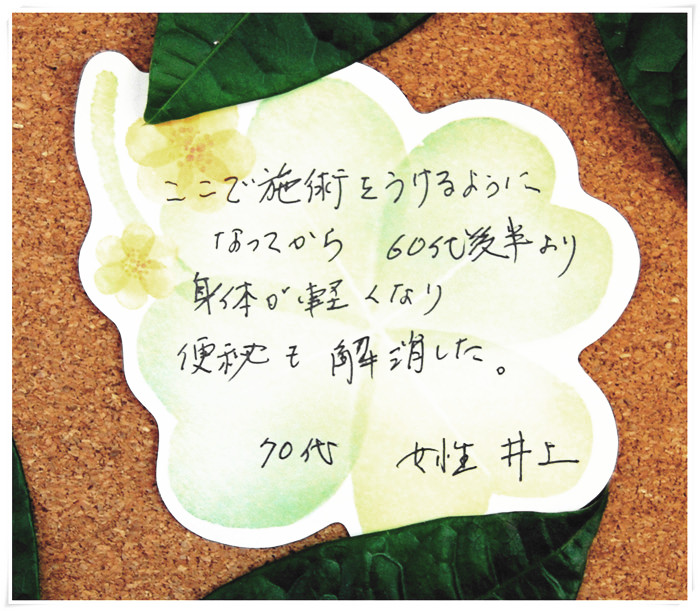 ここで施術をうけるように
なってから 60代後半より
身体が軽くなり
便秘も解消した。
70代 女性 井上